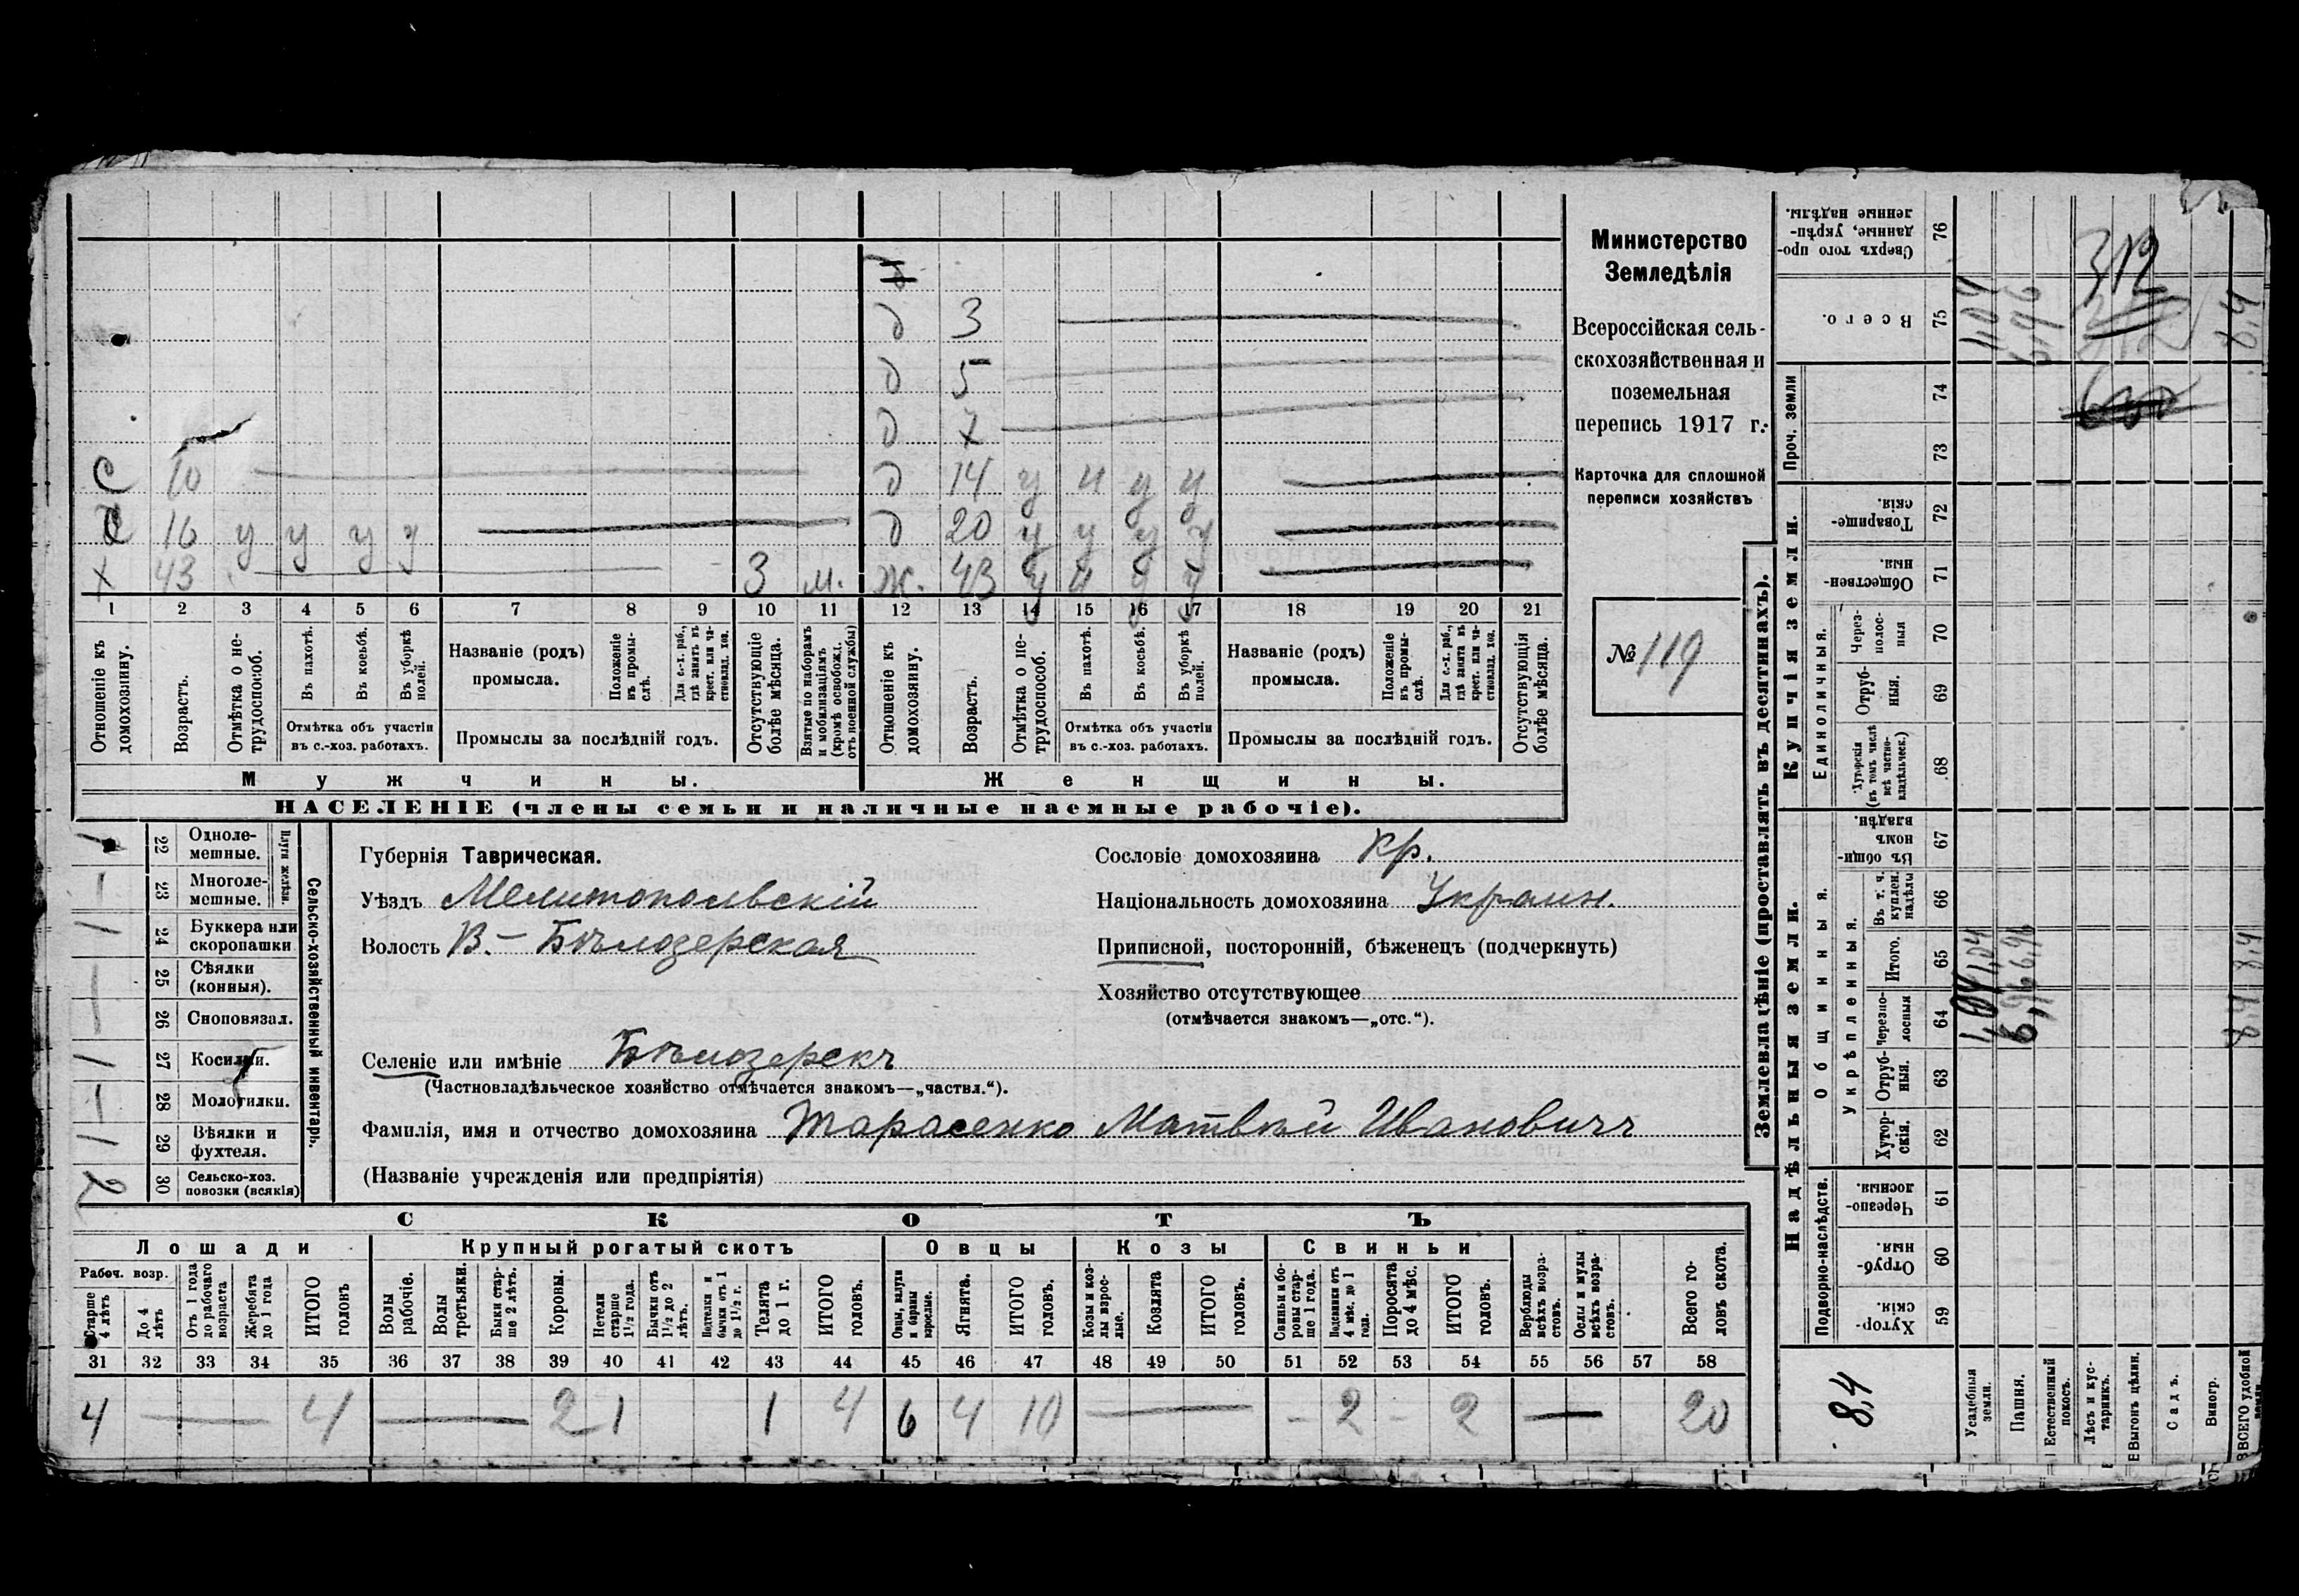 д 3
д 5
д 7
С 10 д 14 у у у у
С 16 у у у у д 20 у у у у
х 43 3 м. Ж. 43 у у у у
1 2 3 4 5 6 7 8 9 10 11 12 13 14 15 16 17 18 19 20 21
Отношеніе къ домохозяину.
Возрастъ.
Отмѣтка о нетрудоспособ.
Въ пахотѣ.
Въ косьбѣ.
Въ уборкѣ полей.
Отмѣтка объ участіи
въ с.-хоз. работахъ.
Названіе (родъ)
промысла.
Положеніе въ промыслѣ.
Для с.-х. раб., гдѣ занятъ въ крест. или частновлад. хоз.
Промыслы за послѣдній годъ.
Отсутствующіе болѣе мѣсяца.
Взятые по наборамъ и мобилизаціямъ (кромѣ освобожд. отъ военной службы)
Отношеніе къ домохозяину.
Возрастъ.
Отмѣтка о нетрудоспособ.
Въ пахотѣ.
Въ косьбѣ.
Въ уборкѣ полей.
Отмѣтка объ участіи
въ с.-хоз. работахъ.
Названіе (родъ)
промысла.
Положеніе въ промыслѣ.
Для с.-х. раб., гдѣ занята въ крест. или частновлад. хоз.
Промыслы за послѣдній годъ.
Отсутствующія болѣе мѣсяца.
Мужчины. Женщины.
НАСЕЛЕНІЕ (члены семьи и наличные наемные рабочіе).
Министерство
Земледѣлія
Всероссійская сель-
скохозяйственная и
поземельная
перепись 1917 г.
Карточка для сплошной
переписи хозяйствъ
№ 119
Сельско-хозяйственный инвентарь.
Плуги желѣзн.
22 Одноле-
мешные.
23 Многоле-
мешные.
1
24 Буккера или
скоропашки
1
25 Сѣялки
(конныя).
26 Сноповязал.
27 Косилки.
1
28 Молотилки.
29 Вѣялки и
фухтеля.
1
30 Сельско-хоз.
повозки (всякія)
2
Губернія Таврическая.
Уѣздъ Мелитопольскій
Волость В.-Бѣлозерская
Селеніе или имѣніе Бѣлозерскъ
(Частновладѣльческое хозяйство отмѣчается знакомъ—„частвл.“).
Фамилія, имя и отчество домохозяина Тарасенко Матвѣй Ивановичъ
(Названіе учрежденія или предпріятія)
Сословіе домохозяина кр.
Національность домохозяина Украин.
Приписной, посторонній, бѣженецъ (подчеркнуть)
Хозяйство отсутствующее
(отмѣчается знакомъ—„отс.“).
СКОТЪ
Лошади Крупный рогатый скотъ Овцы Козы Свиньи
Рабоч. возр.
Старше 4 лѣтъ
До 4 лѣтъ
Отъ 1 года до рабочаго возраста
Жеребята до 1 года
ИТОГО головъ
Волы рабочіе.
Волы третьяки.
Быки старше 2 лѣтъ.
Коровы.
Нетели старше 1½ года.
Бычки отъ 1½ до 2 лѣтъ.
Подтелки и бычки отъ 1 до 1½ г.
Телята до 1 г.
ИТОГО головъ.
Овцы, валухи и бараны взрослые.
Ягнята.
ИТОГО головъ.
Козы и козлы взрослые.
Козлята
ИТОГО головъ.
Свиньи и боровы старше 1 года.
Подсвинки отъ 4 мѣс. до 1 года.
Поросята до 4 мѣс.
ИТОГО головъ.
Верблюды всѣхъ возрастовъ.
Ослы и мулы всѣхъ возрастовъ.
Всего головъ скота.
31 32 33 34 35 36 37 38 39 40 41 42 43 44 45 46 47 48 49 50 51 52 53 54 55 56 57 58
4 — 4 — 2 1 1 4 6 4 10 — - 2 - 2 — 20
Землевладѣніе (проставлять въ десятинахъ).
Надѣльныя земли. Купчія земли.
Подворно-наслѣдств.
Общинныя.
Укрѣпленныя.
Единоличныя.
Проч. земли
Хуторскія. 59
Отрубныя. 60
Черезполосныя. 61
Хуторскія. 62
Отрубныя. 63
Черезполосныя 64
Итого. 65
Въ т. ч. куплен. надѣлы 66
Въ общинномъ владѣн. 67
Хуторскія (въ томъ числѣ всѣ частновладѣльческ.) 68
Отрубныя. 69
Черезполосныя 70
Общественныя. 71
Товарищескія. 72
73
74
Всего. 75
Сверхъ того проданные, укрѣпленные надѣлы. 76
8,4
Усадебныя земли.
1,04
1,04
Пашня.
6,96
6,96
Естественный покосъ.
Лѣсъ и кустарникъ.
312
Выгонъ цѣлин.
Садъ.
Виногр.
ВСЕГО удобной земли
8,4
8,4
8,4